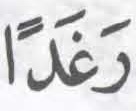 رَغَدًا